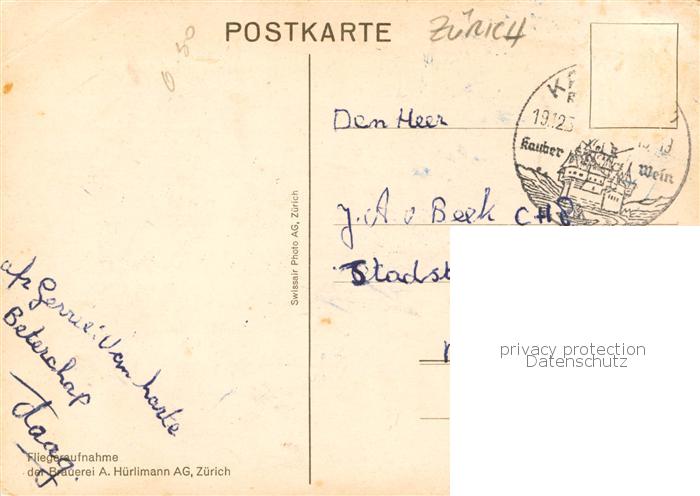 POSTKARTE
ZÜRICH
0 50
19.12.5
Kauber Wein
Den Heer
J.A. v Beek
Stadst
Swissair Photo AG, Zürich
Van harte
Beterschap
Fliegeraufnahme
der Brauerei A. Hürlimann AG, Zürich
privacy protection
Datenschutz